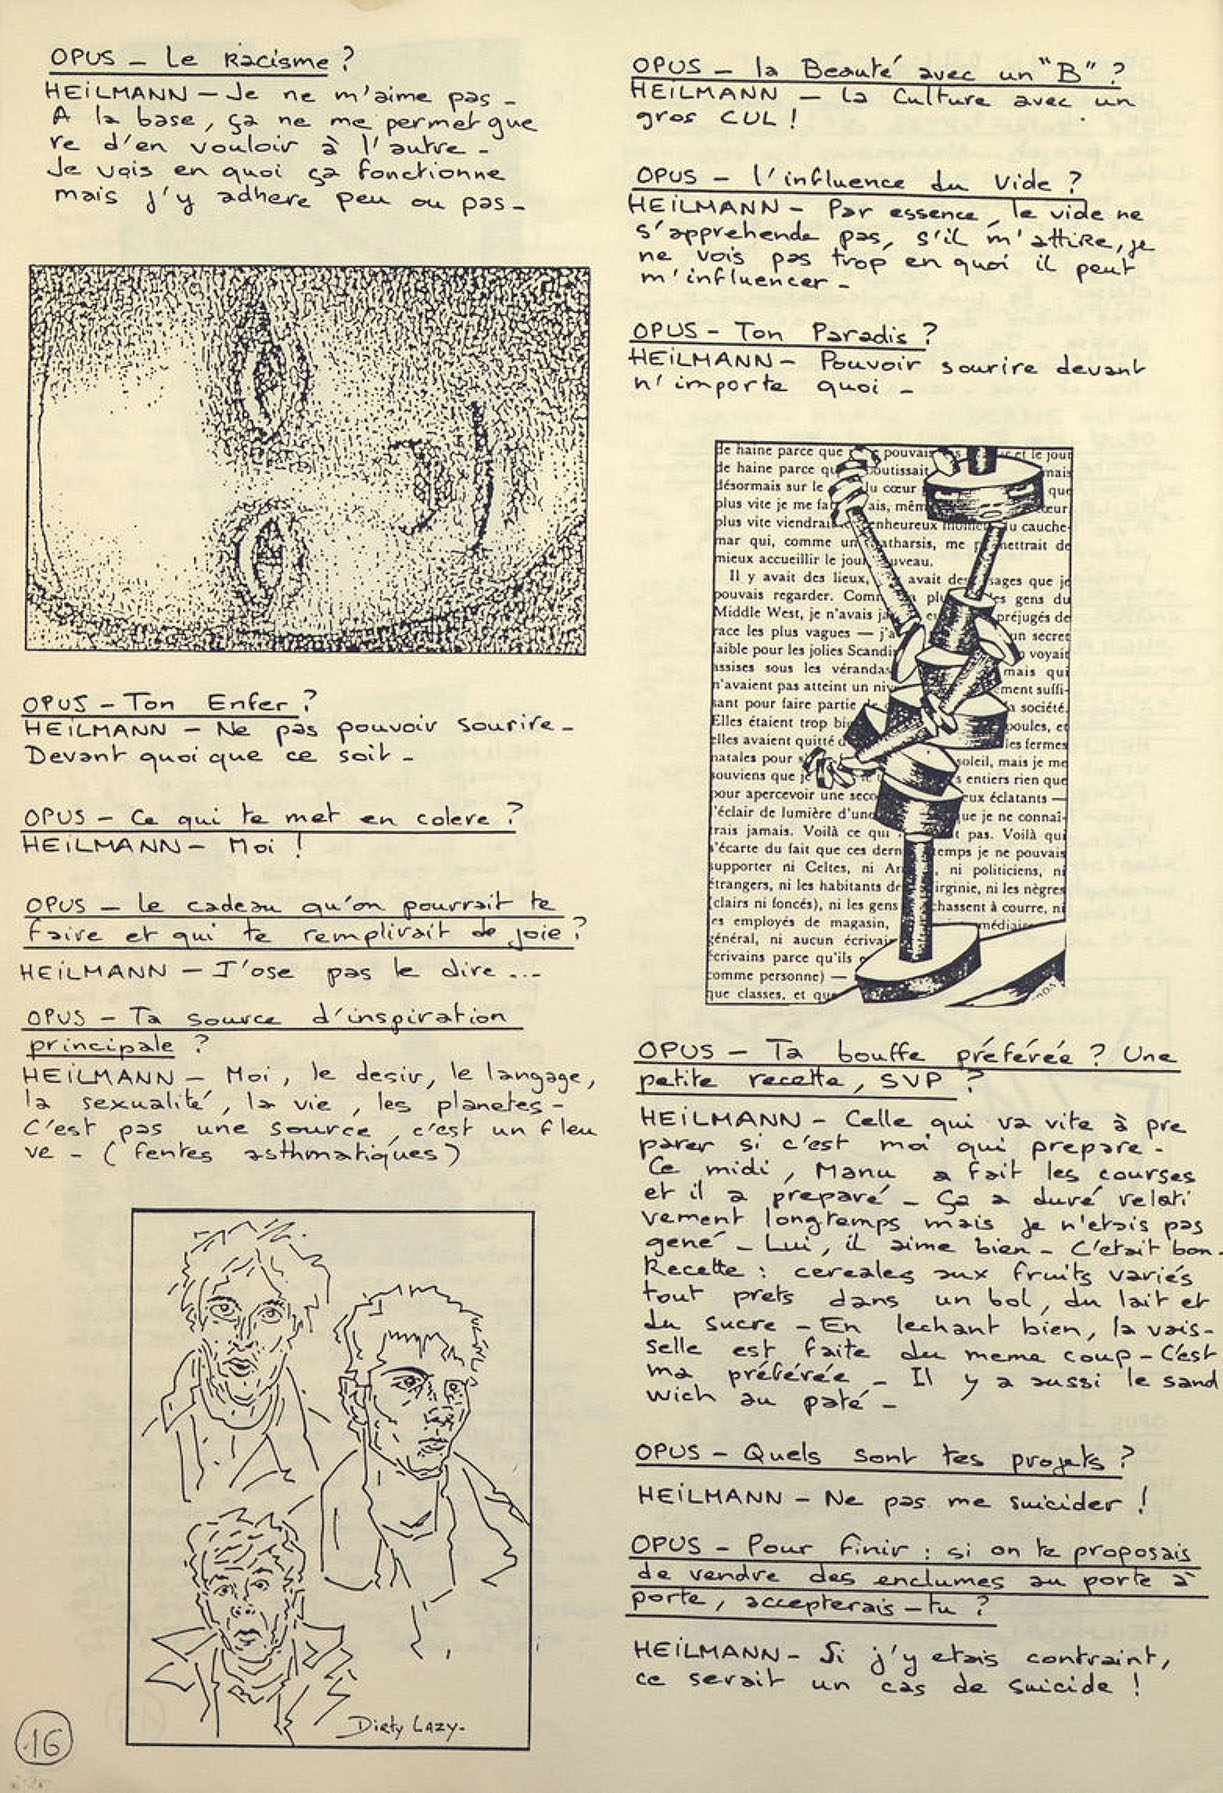 OPUS - Le Racisme ?
HEILMANN - Je ne m'aime pas -
A la base, ça ne me permet gue
re d'en vouloir à l'autre -
Je vois en quoi ça fonctionne
mais j'y adhere peu ou pas -
OPUS - Ton Enfer ?
HEILMANN - Ne pas pouvoir sourire -
Devant quoi que ce soit -
OPUS - Ce qui te met en colere ?
HEILMANN - Moi !
OPUS - le cadeau qu'on pourrait te
faire et qui te remplirait de joie ?
HEILMANN - J'ose pas le dire ...
OPUS - Ta source d'inspiration
principale ?
HEILMANN - Moi, le desir, le langage,
la sexualité, la vie, les planetes -
C'est pas une source, c'est un fleu
ve - (fentes asthmatiques)
Dirty Lazy -
16
OPUS - la Beauté avec un "B" ?
HEILMANN - La Culture avec un
gros CUL !
OPUS - l'influence du Vide ?
HEILMANN - Par essence, le vide ne
s'apprehende pas, s'il m'attire, je
ne vois pas trop en quoi il peut
m'influencer -
OPUS - Ton Paradis ?
HEILMANN - Pouvoir sourire devant
n'importe quoi -
de haine parce que pouvais et le jour
de haine parce qu outissait mais
désormais sur le du cœur que
plus vite je me fa ais, mêm cœur
plus vite viendrai enheureux moment du cauche-
mar qui, comme un atharsis, me p mettrait de
mieux accueillir le jour uveau.
Il y avait des lieux, avait des sages que je
pouvais regarder. Com plu les gens du
Middle West, je n'avais ja préjugés de
race les plus vagues — j'a un secret
faible pour les jolies Scandi voyait
assises sous les vérandas mais qui
n'avaient pas atteint un niv ment suffi-
sant pour faire partie la société.
Elles étaient trop bi poules, et
elles avaient quitté d les fermes
natales pour soleil, mais je me
souviens que je s entiers rien que
pour apercevoir une seco eux éclatants —
l'éclair de lumière d'une que je ne connaî-
trais jamais. Voilà ce qui t pas. Voilà qui
s'écarte du fait que ces dern temps je ne pouvais
supporter ni Celtes, ni A , ni politiciens, ni
étrangers, ni les habitants de irginie, ni les nègres
(clairs ni foncés), ni les gens chassent à courre, ni
les employés de magasin, médiaire
général, ni aucun écrivai
écrivains parce qu'ils
comme personne) —
que classes, et que
OPUS - Ta bouffe préférée ? Une
petite recette, SVP ?
HEILMANN - Celle qui va vite à pre
parer si c'est moi qui prepare -
Ce midi, Manu a fait les courses
et il a preparé - Ça a duré relati
vement longtemps mais je n'etais pas
gené - Lui, il aime bien - C'etait bon.
Recette : cereales aux fruits variés
tout prets dans un bol, du lait et
du sucre - En lechant bien, la vais-
selle est faite du meme coup - C'est
ma préférée - Il y a aussi le sand
wich au paté -
OPUS - Quels sont tes projets ?
HEILMANN - Ne pas me suicider !
OPUS - Pour finir : si on te proposais
de vendre des enclumes au porte à
porte, accepterais-tu ?
HEILMANN - Si j'y etais contraint,
ce serait un cas de suicide !